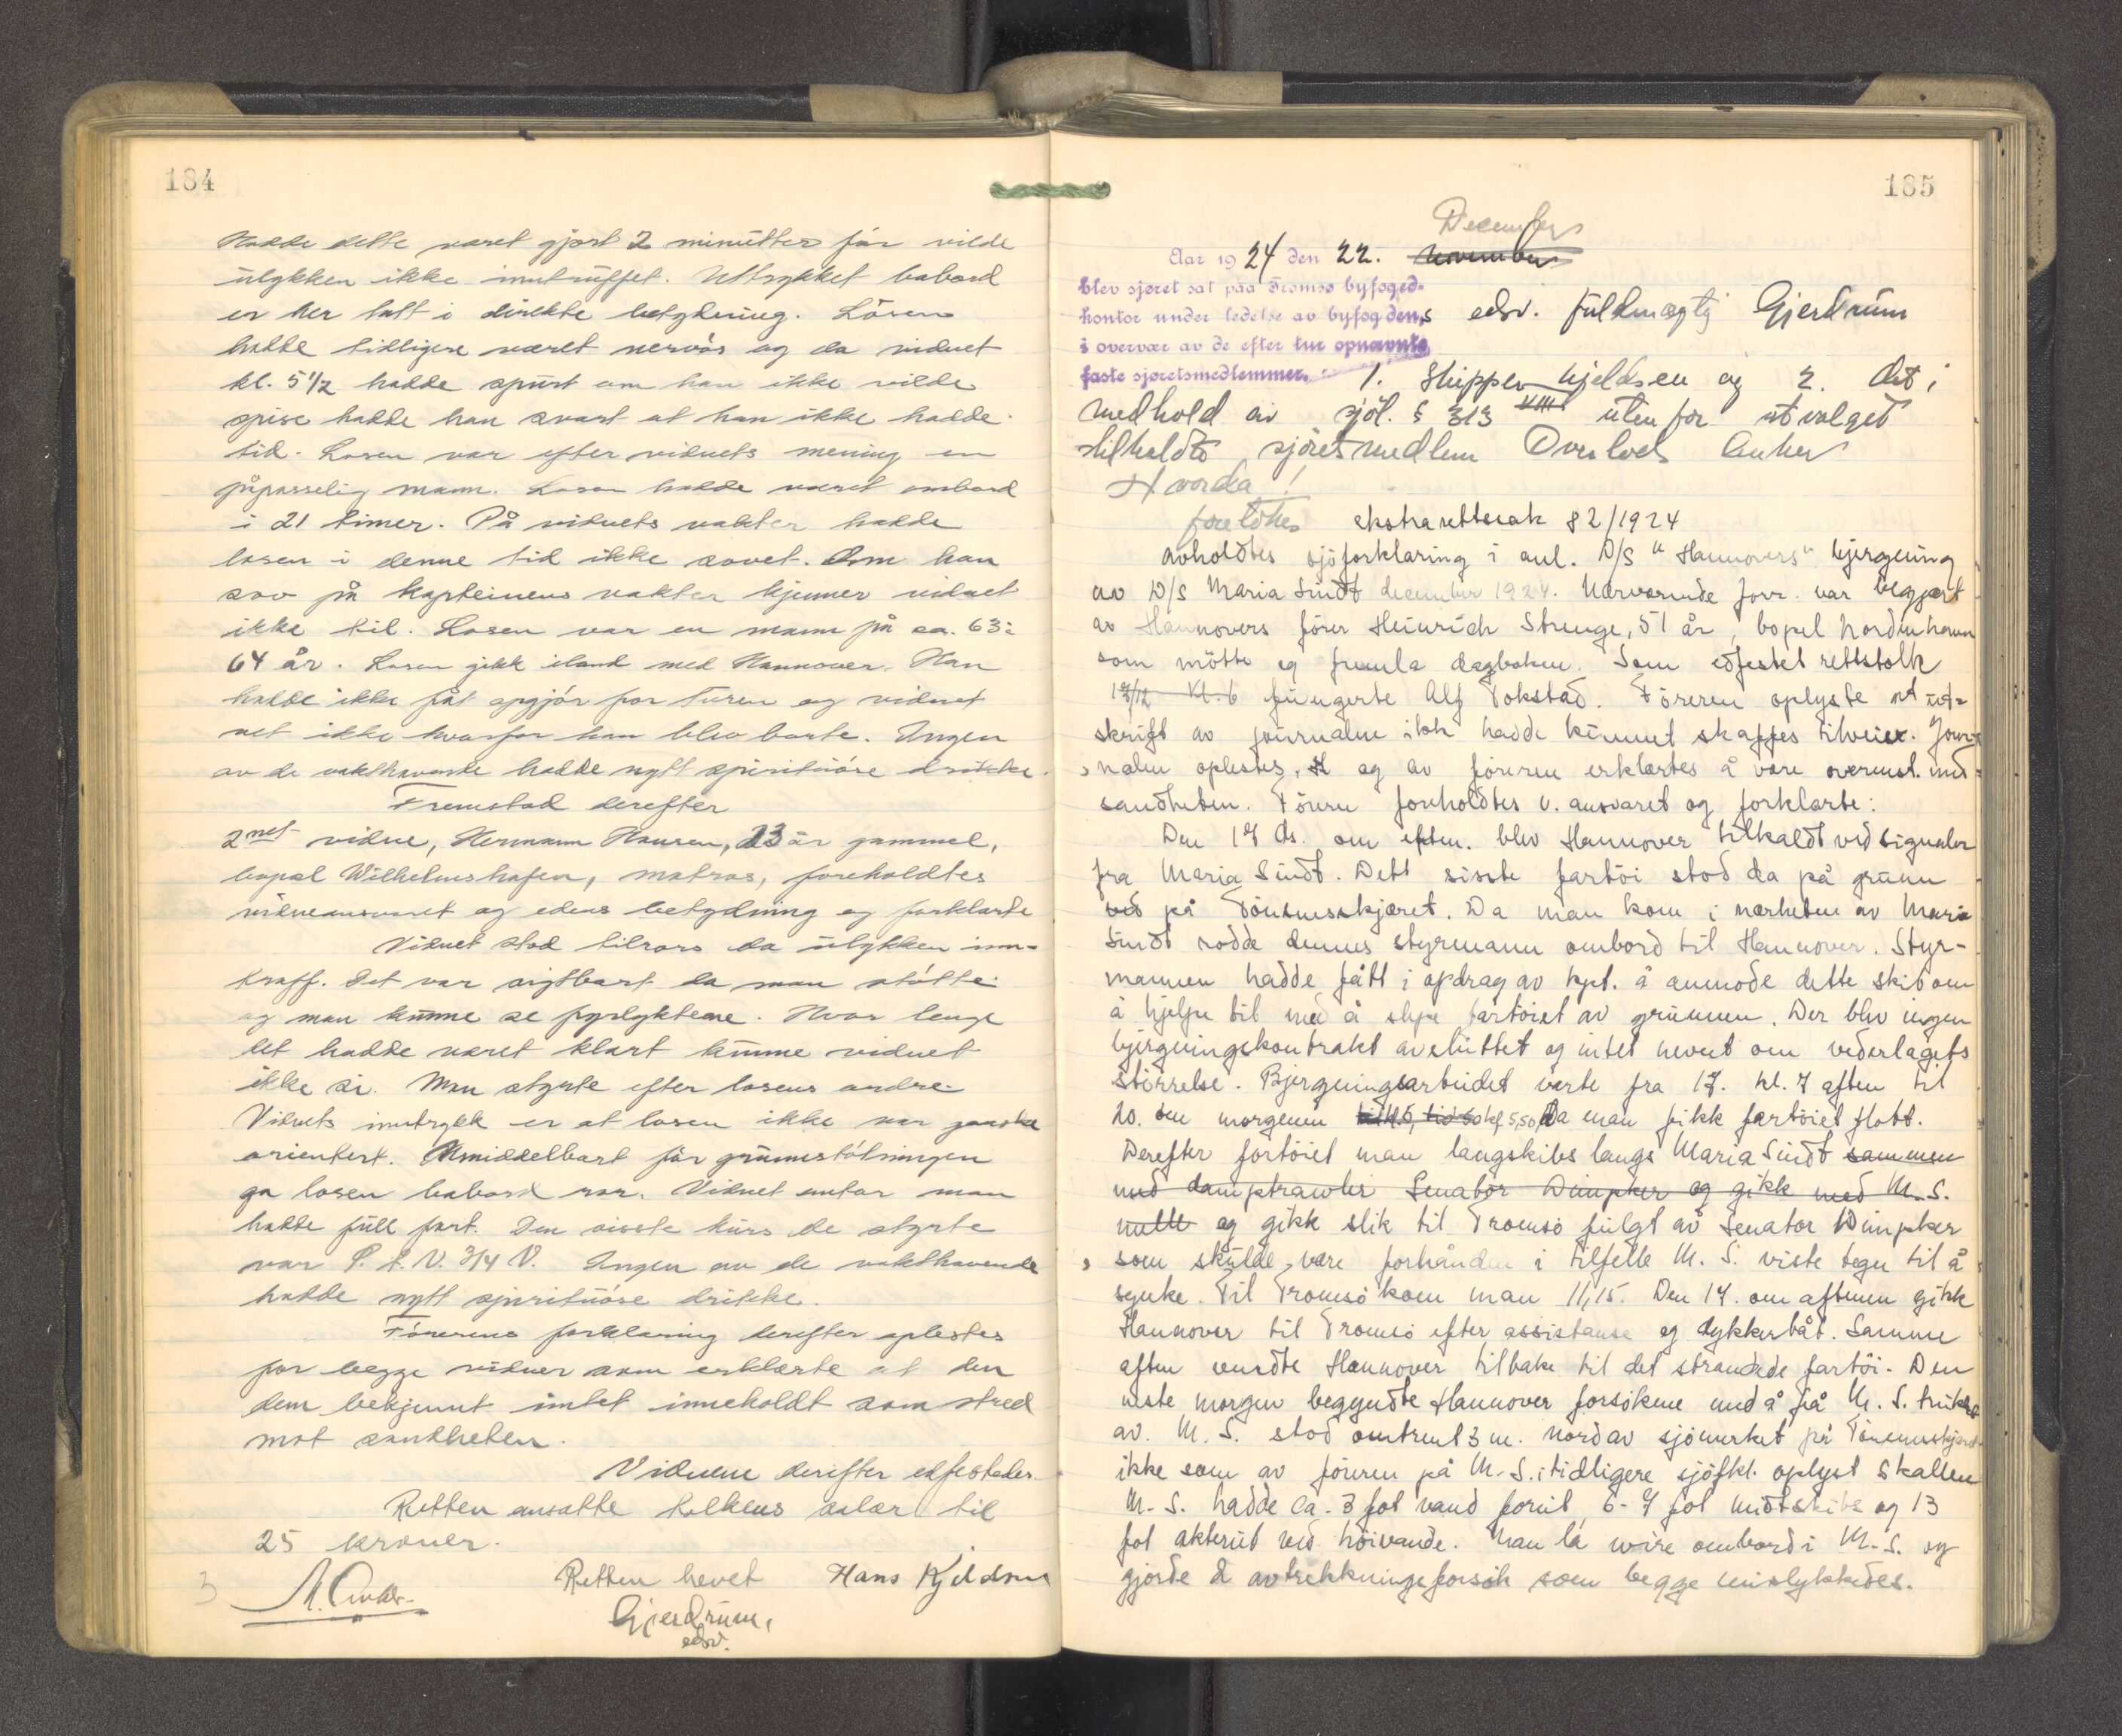 184
Hadde dette været gjort 2 minutter før vilde
ulykken ikke inntruffet. Uttrykket babord
er her tatt i direkte betydning. Losen
hadde tidligere været nervøs og da vidnet
kl. 5 1/2 hadde spurt om han ikke vilde
spise hadde han svart at han ikke hadde
tid. Losen var efter vidnets mening en
påpasselig mann. Losen hadde været ombord
i 21 timer. På vidnets vakter hadde
losen i denne tid ikke sovet. Om han
sov på kapteinens vakter kjenner vidnet
ikke til. Losen var en mann på ca. 63:
64 år. Losen gikk iland med Hannover. Han
hadde ikke fåt opgjör for turen og vidnet
vet ikke hvorfor han blev borte. Ingen
av de vakthavende hadde nytt spirituöse drikke.
Fremstod derefter
2net vidne, Hermann Hansen, 23 år gammel,
bopel Wilhelmshafen, matros, foreholdtes
vidneansvaret og edens betydning og forklarte
Vidnet stod tilrors da ulykken inn-
traff. Det var sigtbart da man støtte
og man kunne se fyrlyktene. Hvor lenge
det hadde været klart kunne vidnet
ikke si. Man styrte efter losens ordre.
Vidnets inntrykk er at losen ikke var ganske
orientert. Umiddelbart før grunnstötningen
ga losen babord ror. Vidnet antar man
hadde full fart. Den sisste kurs de styrte
var S. t. V. 3/4 V. Ingen av de vakthavende
hadde nytt spirituöse drikke.
Förerens forklaring derefter oplestes
for begge vidner som erklærte at den
dem bekjennt intet inneholdt som stred
mot sandheten.
Vidnene derifter edfestedes.
Retten ansatte tolkens salær til
25 kroner.
Retten hevet Hans Kjeldsen
Gjerdrum,
edsv.
3
185
December
Aar 1924 den 22. November
blev sjøret sat paa Tromsø byfoged-
kontor under ledelse av byfogdens edsv. fuldmægtig Gjerdrum
i overvær av de efter tur opnævnte
faste sjøretsmedlemmer. 1. Skipper Kjeldsen og 2. det i
medhold av sjöl. § 313 utenfor utvalget
tilkaldte sjöretsmedlem Overlods Anker
Hvorda!
foretokes ekstrarettssak 82/1924
avholdtes sjöforklaring i anl. D/S "Hannovers" bjergning
av D/S Maria Sindt december 1924. Nærværende forr. var begjært
av Hannovers förer Heinrich Strenge, 51 år, bopel Nordenhamn
som mötte og fremla dagboken. Som edfestet rettstolk
17/12 Kl. 6 fungerte Alf Tokstad. Föreren oplyste at ut-
skrift av journalen ikke hadde kunnet skaffes tilveie. Jour-
nalen oplestes, og av föreren erklærtes å være overenst. med
sandheten. Föreren foreholdtes v. ansvaret og forklarte:
Den 17 ds. om eftm. blev Hannover tilkaldt ved signaler
fra Maria Sindt. Dett sisste fartöi stod da på grunn
ved på Tönsnesskjæret. Da man kom i nærheten av Maria
Sindt rodde dennes styrmann ombord til Hannover. Styr-
mannen hadde fått i opdrag av kpt. å anmode dette skib om
å hjelpe til med å slepe fartöiet av grunnen. Der blev ingen
bjergningskontrakt avsluttet og intet nevnt om vederlagets
störrelse. Bjergningsarbeidet varte fra 17. kl. 7 aften til
20. om morgenen kl 5,50 da man fikk fartöiet flott.
Derefter fortöiet man langskibs langs Maria Sindt sammen
med damptrawler Senator Dimpker og gikk med M. S.
og gikk slik til Tromsö fulgt av Senator Dimpker
som skulde være forhånden i tilfelle M. S. viste tegn til å
synke. Til Tromsö kom man 11,15. Den 17. om aftenen gikk
Hannover til Tromsö efter assistanse og dykkerbåt. Samme
aften vendte Hannover tilbake til det strandede fartöi. Den
neste morgen begyndte Hannover forsökene med å få M. S. trukket
av. M. S. stod omtrent 3 m. nordav sjömerket på Tönsnesskjæret
ikke som av föreren på M. S. i tidligere sjöfkl. oplyst Skallen
M. S. hadde ca. 3 fot vand forut, 6-7 fot midtskibs og 13
fot akterut ved höivande. Man la wire ombord i M. S. og
gjorde 2 avtrekkningsforsök som begge mislykkedes.